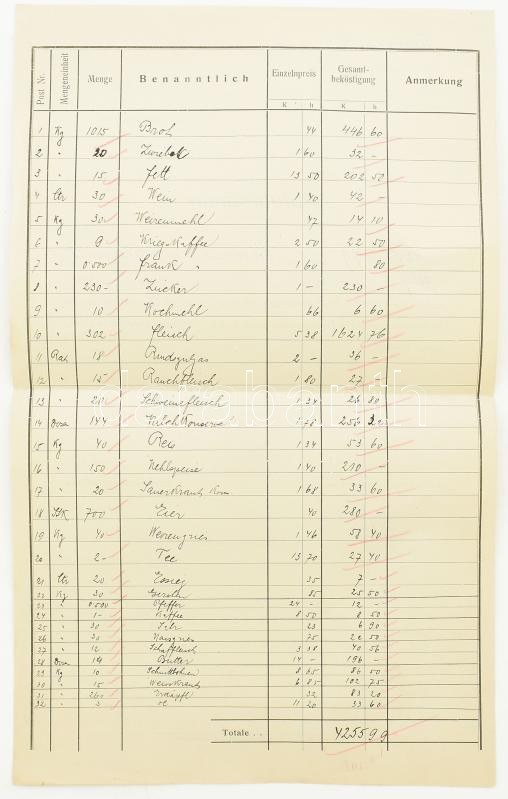 Post Nr. Mengeneinheit Menge Benanntlich Einzelnpreis Gesamtbeköstigung Anmerkung
K h K h
1 Kg 1015 Brot 44 446 60
2 " 20 Zwieback 1 60 32 –
3 " 15 Fett 13 50 202 50
4 Ltr 30 Wein 1 40 42 –
5 Kg 30 Weizenmehl 47 14 10
6 " 9 Krieg-Kaffee 2 50 22 50
7 " 0·500 Frank " 1 60 80
8 " 230 – Zucker 1 – 230 –
9 " 10 Kochmehl 66 6 60
10 " 302 – Fleisch 5 38 1624 76
11 18 Rindsgulyas 2 – 36 –
12 " 15 Rauchfleisch 1 80 27 –
13 " 20 Schweinefleisch 1 34 26 80
14 Dose 144 1 78 256 32
15 Kg 40 Reis 1 34 53 60
16 " 150 Mehlspeise 1 40 210 –
17 " 20 Sauerkraut Kons. 1 68 33 60
18 Stk 700 Eier 40 280 –
19 Kg 40 Weizengries 1 46 58 40
20 " 2 – Tee 13 70 27 40
21 Ltr 20 Essig 35 7 –
22 Kg 30 Gersten 85 25 50
23 " 0·500 Pfeffer 24 – 12 –
24 " 1 – Kaffee 8 50 8 50
25 " 30 Salz 23 6 90
26 " 30 Maisgries 75 22 50
27 " 12 Schaffleisch 3 38 40 56
28 Dose 14 Butter 14 – 196 –
29 Kg 10 Schnittbohnen 8 65 86 50
30 " 15 Weinkraut 6 85 102 75
31 " 260 Erdäpfl 32 83 20
32 " 3 Öl 11 20 33 60
Totale . . 4255 99